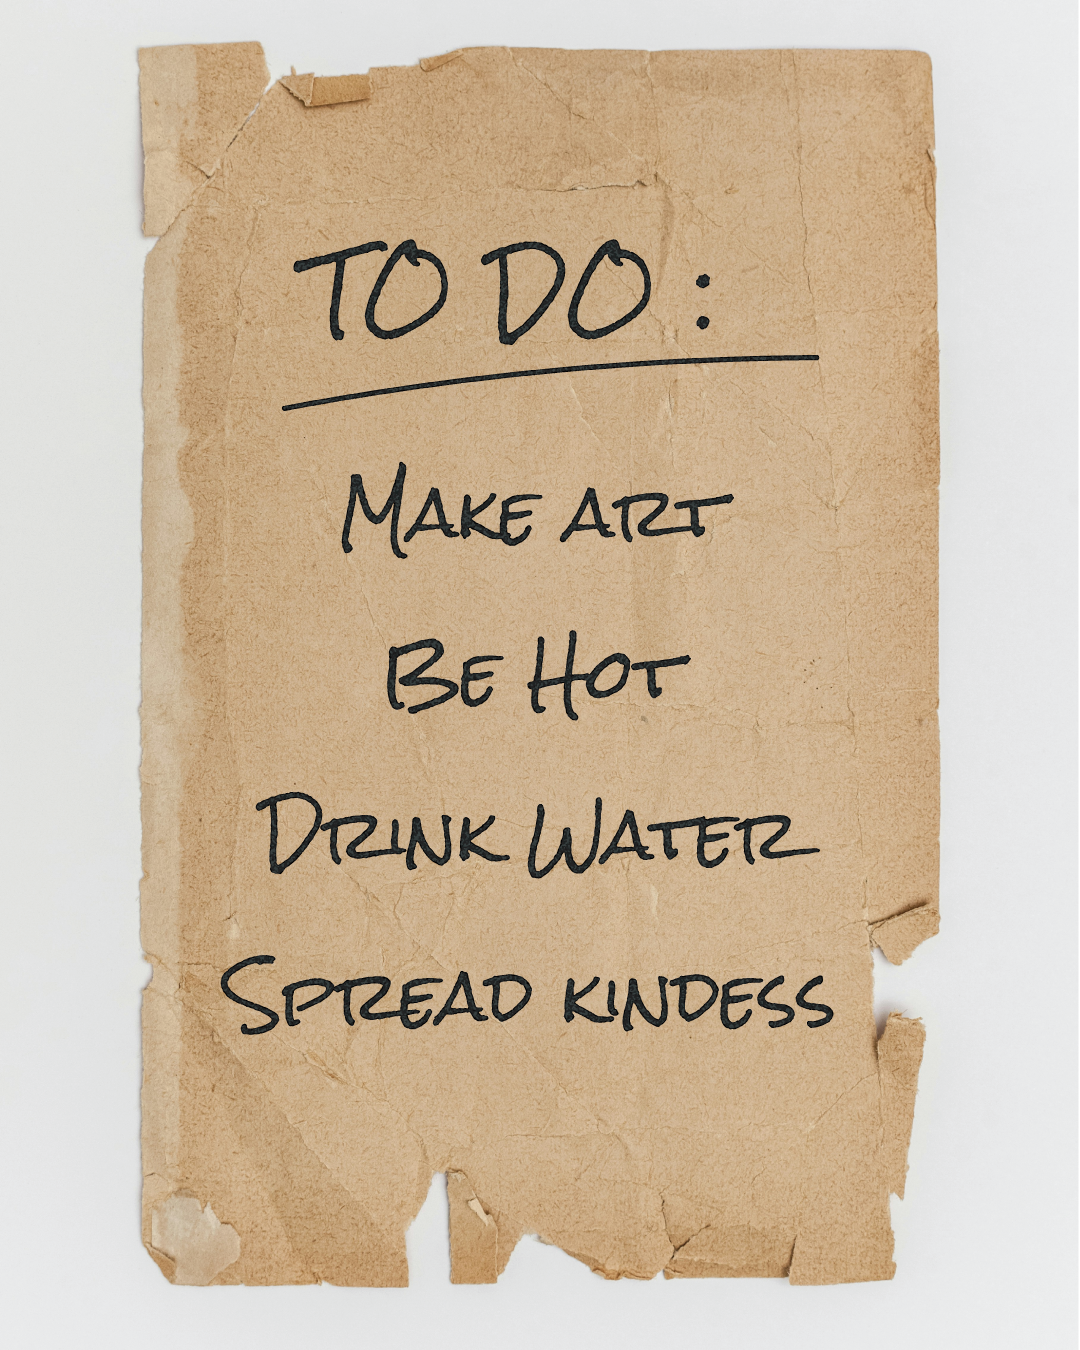 TO DO :
MAKE ART
BE HOT
DRINK WATER
SPREAD KINDESS